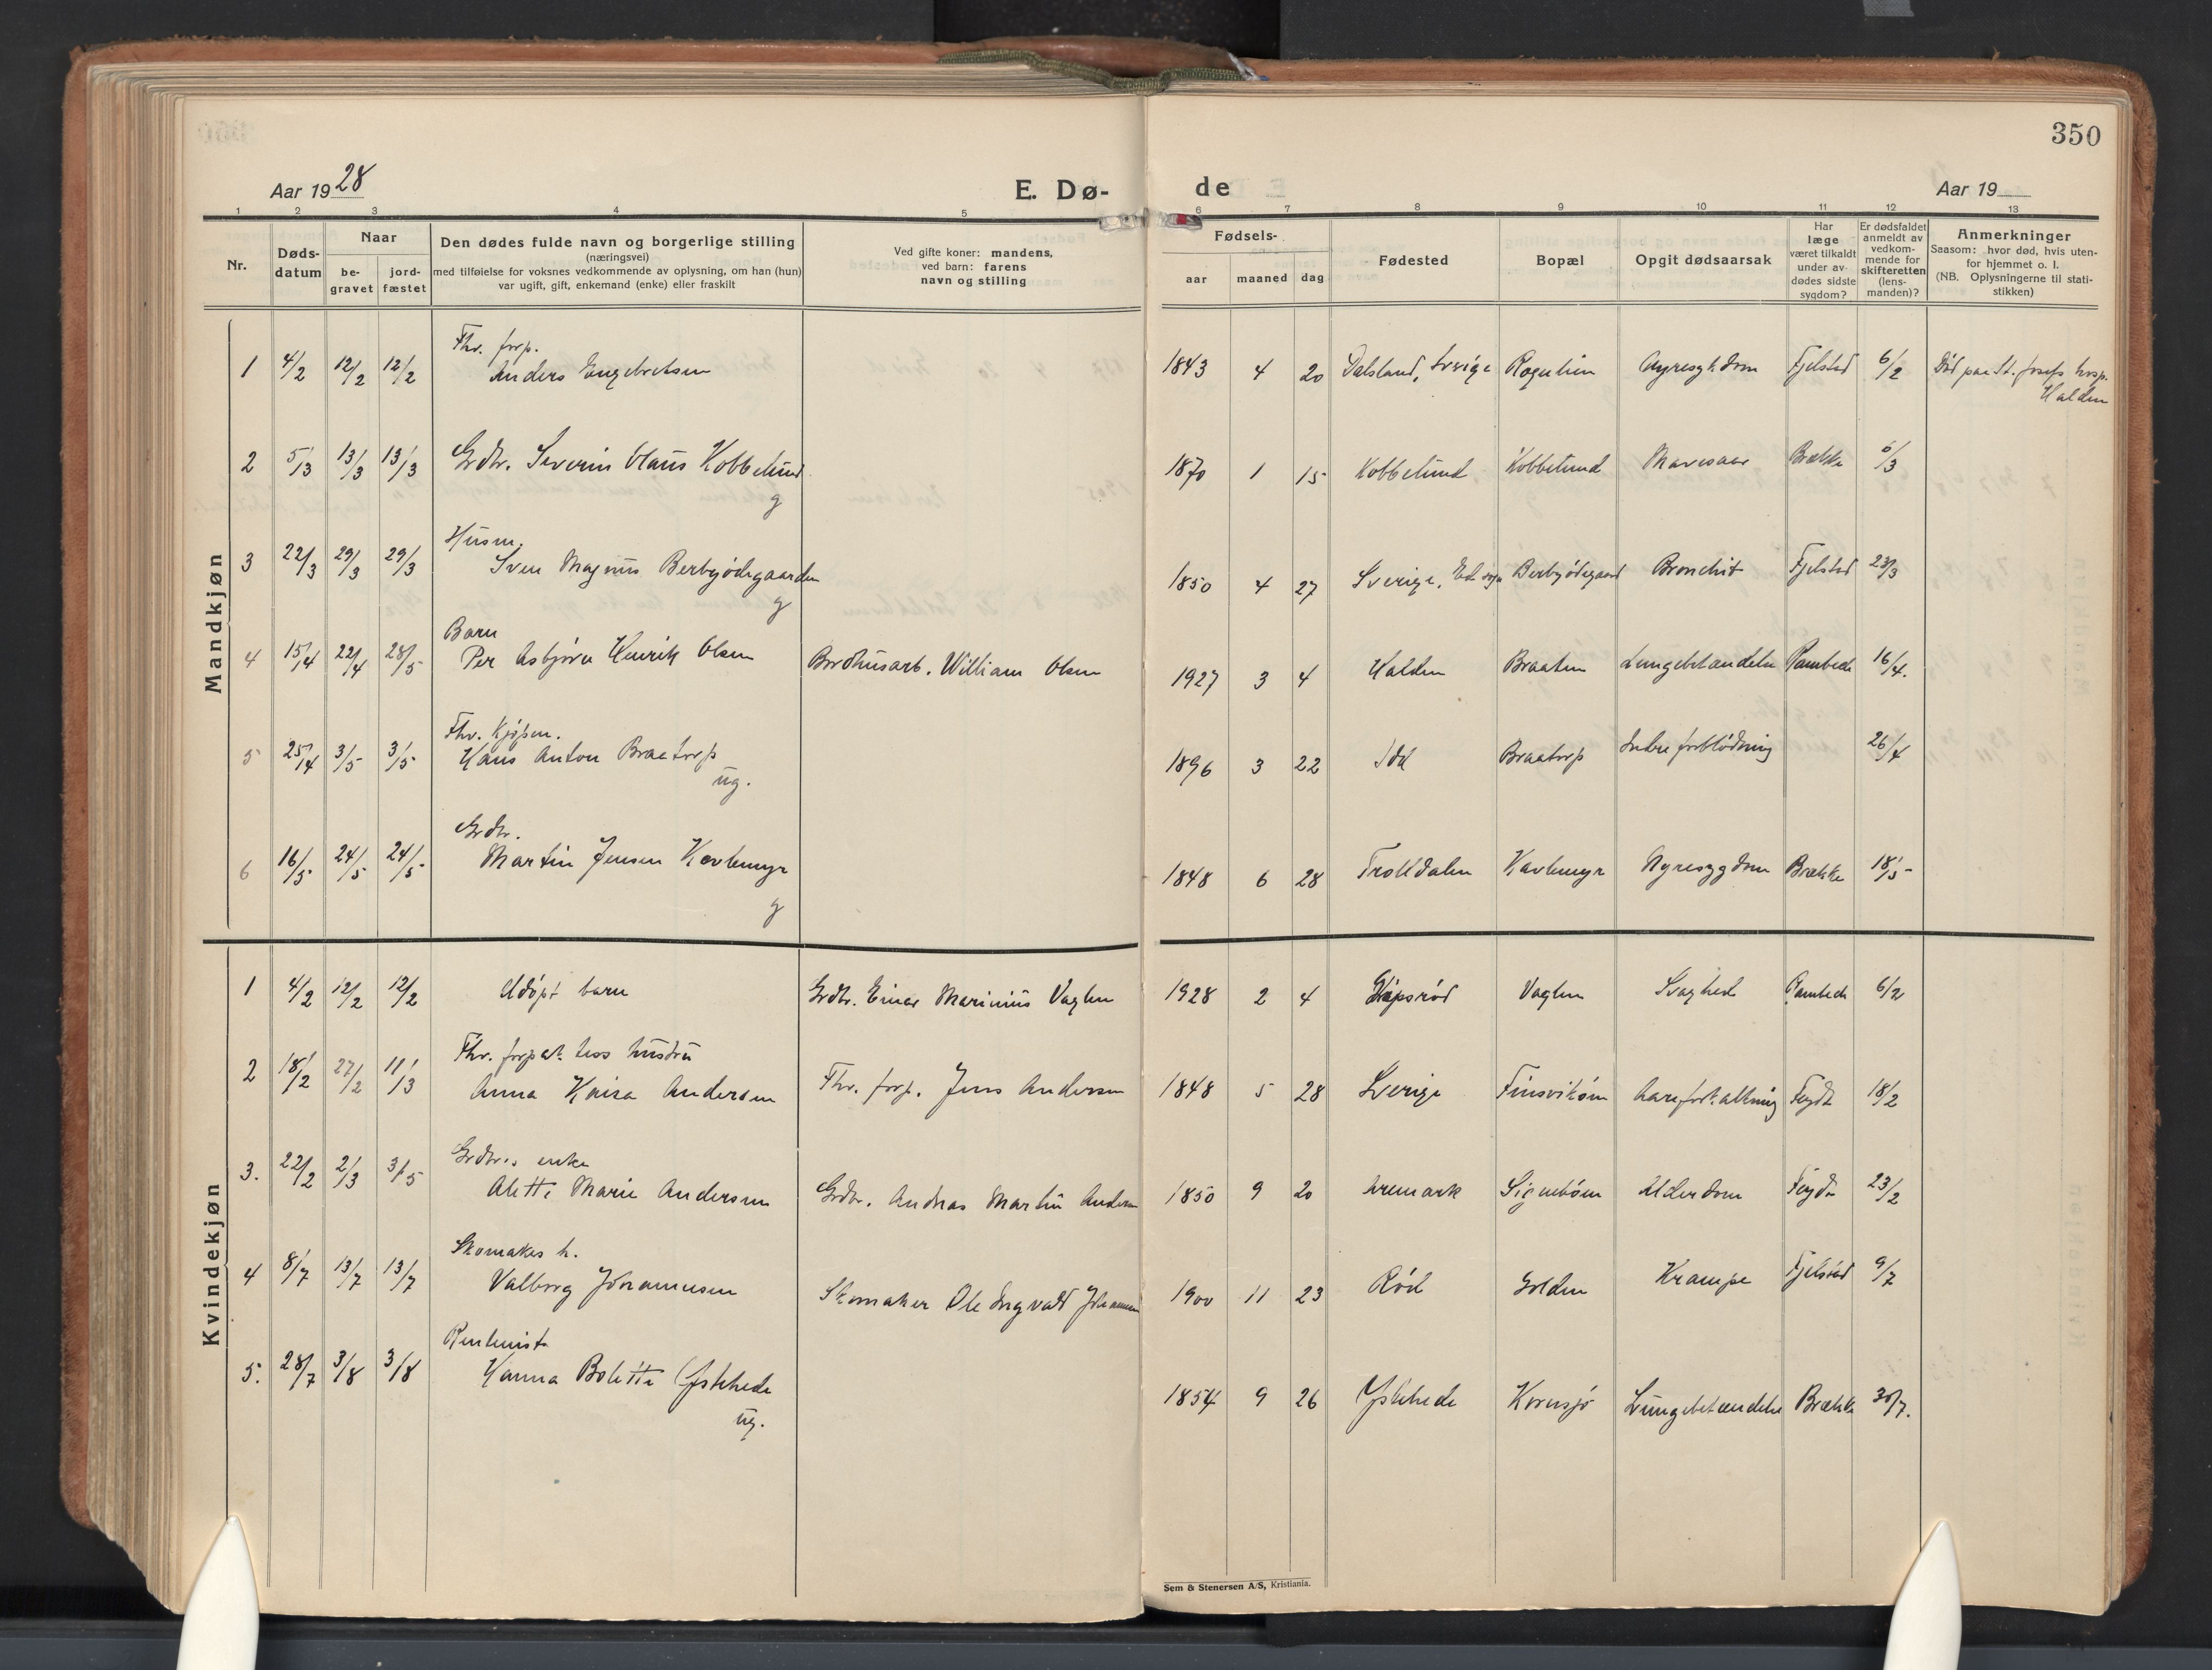 350
Aar 1928
E. Dø-
de
Aar 19
1 2 3 4 5 6 7 8 9 10 11 12 13
Nr.
Døds-
datum
Naar
be-
gravet
jord-
fæstet
Den dødes fulde navn og borgerlige stilling
(næringsvei)
med tilføielse for voksnes vedkommende av oplysning, om han (hun)
var ugift, gift, enkemand (enke) eller fraskilt
Ved gifte koner: mandens,
ved barn: farens
navn og stilling
Fødsels-
aar maaned dag
Fødested
Bopæl
Opgit dødsaarsak
Har
læge
været tilkaldt
under av-
dødes sidste
sygdom?
Er dødsfaldet
anmeldt av
vedkom-
mende for
skifteretten
(lens-
manden)?
Anmerkninger
Saasom: hvor død, hvis uten-
for hjemmet o. l.
(NB. Oplysningerne til stati-
stikken)
Mandkjøn
Fhv. forp.
1 4/2 12/2 12/2 Anders Engebretsen 1843 4 20 Dalsland, Sverige Rogulien Nyresykdom Fjelstad 6/2 Død paa St. Josefs hosp.
Halden
2 5/3 13/3 13/3 Grdbr. Severin Olaus Kobbelund 1870 1 15 Kobbelund Kobbelund Mavesaar Brække 6/3
g
Husm.
3 22/3 29/3 29/3 Sven Magnus Berbyødegaarden 1850 4 27 Sverige, Ed sogn Berbyødegaard Bronchit Fjelstad 23/3
g
Barn
4 15/4 22/4 28/5 Per Asbjørn Henrik Olsen Bordhusarb. William Olsen 1927 3 4 Halden Braaten Lungebetændelse Rambech 16/4.
Fhv. Kjøpm.
5 25/4 3/5 3/5 Hans Anton Braatorp 1896 3 22 Idd Braatorp Indre forblødning 26/4
ug.
Grdbr.
6 16/5 24/5 24/5 Martin Jensen Kavlemyr 1848 6 28 Trolldalen Kavlemyr Nyresygdom Brække 18/5
g
Kvindekjøn
1 4/2 12/2 12/2 Udøpt barn Grdbr. Einar Marinius Vaglen 1928 2 4 Vaglen Svaghed Rambech 6/2
Fhv. hustru
2 18/2 27/2 11/3 Anna Kaisa Andersen Fhv. forp. Jens Andersen 1848 5 28 Sverige Aareforkalkning Feydt 18/2
Grdbr.s enke
3. 22/2 2/3 3/5 Alette Marie Andersen Grdbr. Andreas Martin Andersen 1850 9 20 Aremark Signebøen Alderdom Feydt 23/2
Skomakers h.
4 8/7 13/7 13/7 Valborg Johannesen Skomaker Ole Ingvald Johannesen 1900 11 23 Rød Holden Krampe Fjelstad 9/7
Rentenist
5. 28/7 3/8 3/8 Hanna Bolette Ystehede 1854 9 26 Ystehede Kornsjø Lungebetændelse Brække 30/7.
ug.
Sem & Stenersen A/S, Kristiania.